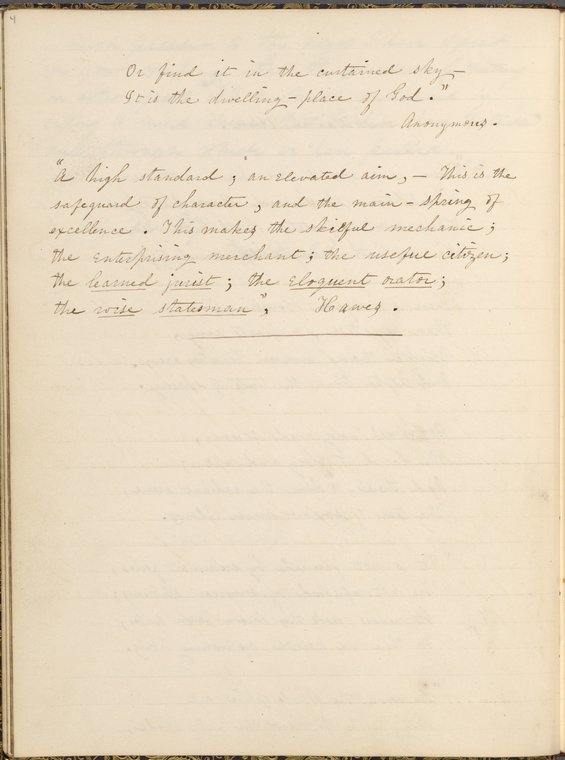 4
Or find it in the curtained sky—
It is the dwelling-place of God."
Anonymous.
"A high standard; an elevated aim,— This is the
safeguard of character, and the main-spring of
excellence. This makes the skilful mechanic;
the enterprising merchant; the useful citizen;
the learned jurist; the eloquent orator;
the wise statesman", Hawes.